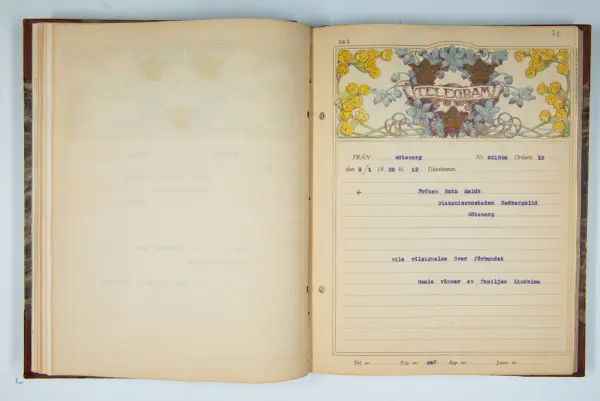 TELEGRAM
FRÅN Göteborg Nr. Ordant. 10
den 2/1 19 20 kl 12 Tjänsteanm.
+ Fröken Ruth Heldt
Diakonissbostaden Redbergslid
Göteborg
vile välsignelse över förbundet
Gamla vänner av familjen Lindblom
Tel. nr Exp. nr App. nr Journ. nr